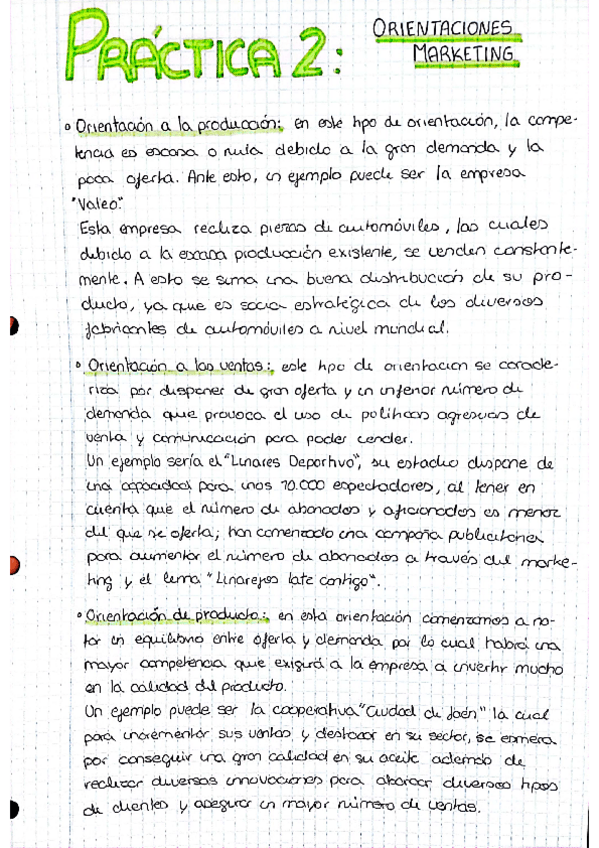 PRÁCTICA 2: ORIENTACIONES
MARKETING
• Orientación a la producción: en este tipo de orientación, la compe-
tencia es escasa o nula debido a la gran demanda y la
poca oferta. Ante esto, un ejemplo puede ser la empresa
"Valeo".
Esta empresa realiza piezas de automóviles, las cuales
debido a la escasa producción existente, se venden constante-
mente. A esto se suma una buena distribución de su pro-
ducto, ya que es socia estratégica de los diversos
fabricantes de automóviles a nivel mundial.
• Orientación a las ventas: este tipo de orientacion se caracte-
riza por disponer de gran oferta y un inferior número de
demanda que provoca el uso de políticas agresivas de
venta y comunicación para poder vender.
Un ejemplo sería el "Linares Deportivo", su estadio dispone de
una capacidad para unos 10.000 espectadores, al tener en
cuenta que el número de abonados y aficionados es menor
del que se oferta; han comenzado una campaña publicitaria
para aumentar el número de abonados a través del marke-
ting y el lema "Linarejos late contigo".
• Orientación de producto: en esta orientación comenzamos a no-
tar un equilibrio entre oferta y demanda por lo cual habrá una
mayor competencia que exigirá a la empresa a invertir mucho
en la calidad del producto.
Un ejemplo puede ser la cooperativa "Ciudad de Jaén" la cual
para incrementar sus ventas y destacar en su sector, se esmera
por conseguir una gran calidad en su aceite además de
realizar diversas innovaciones para abarcar diversos tipos
de clientes y asegurar un mayor número de ventas.